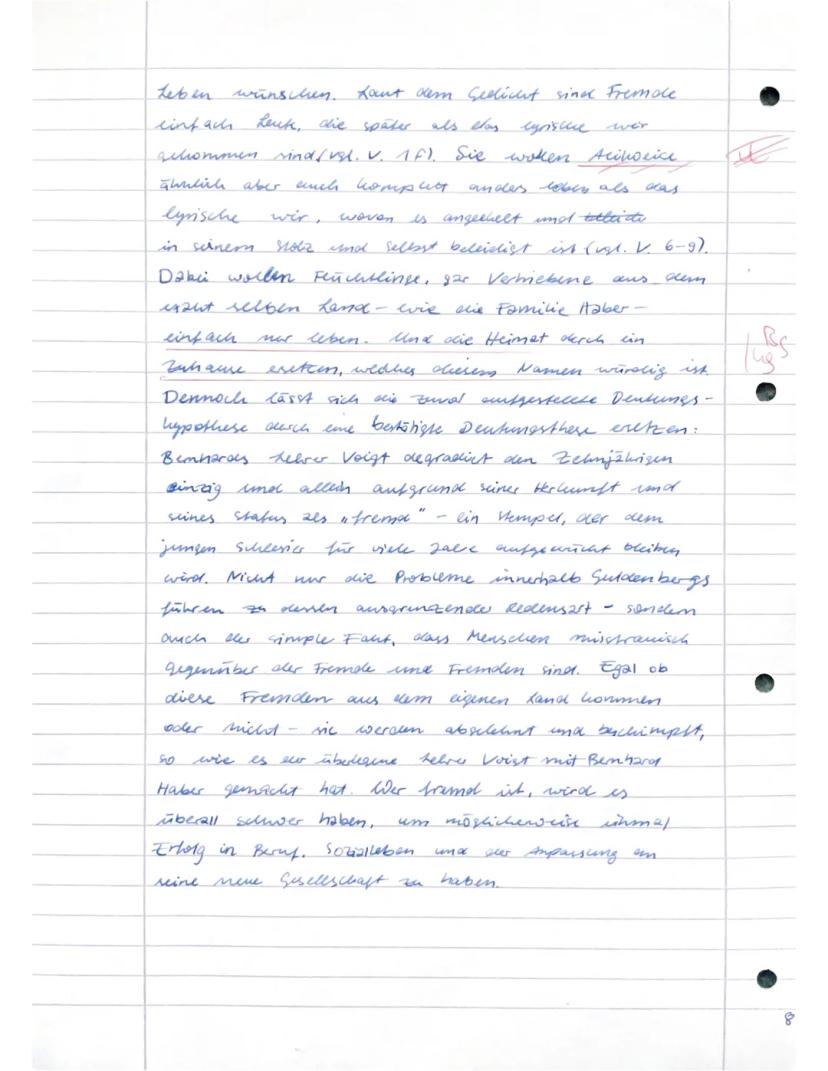 Leben wünschen. Laut dem Gedicht sind Fremde
einfach Leute, die später als das lyrische wir
gekommen sind (vgl. V. 1f). Sie wollen
ähnlich aber auch komplett anders leben als das
lyrische wir, wovon es angeekelt und
in seinem Stolz und selbst beleidigt ist (vgl. V. 6-9).
Dabei wollen Flüchtlinge, gar Vertriebene aus dem
selben Land - wie die Familie Haber -
einfach nur leben. Und die Heimat durch ein
Zuhause ersetzen, welches diesem Namen würdig ist.
Dennoch lässt sich die zuvor aufgestellte Deutungs-
hypothese durch eine bestätigte Deutungsthese ersetzen:
Bernhards Lehrer Voigt degradiert den Zehnjährigen
einzig und allein aufgrund seiner Herkunft und
seines Status als "fremd" - ein Stempel, der dem
jungen Schlesier für viele Jahre aufgedrückt bleiben
wird. Nicht nur die Probleme innerhalb Guldenbergs
führen zu dessen ausgrenzender Redensart - sondern
auch der simple Fakt, dass Menschen misstrauisch
gegenüber der Fremde und Fremden sind. Egal ob
diese Fremden aus dem eigenen Land kommen
oder nicht - sie werden abgelehnt und beschimpft,
so wie es der überlegene Lehrer Voigt mit Bernhard
Haber gemacht hat. Wer fremd ist, wird es
überall schwer haben, um möglicherweise einmal
Erfolg in Beruf, Sozialleben und der Anpassung an
seine neue Gesellschaft zu haben.
8